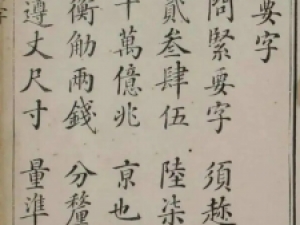 要字
問緊要字 須趂
貳叁肆伍 陸柒
萬億兆 亰也
衡觔兩錢 分釐
遵丈尺寸 量準
字